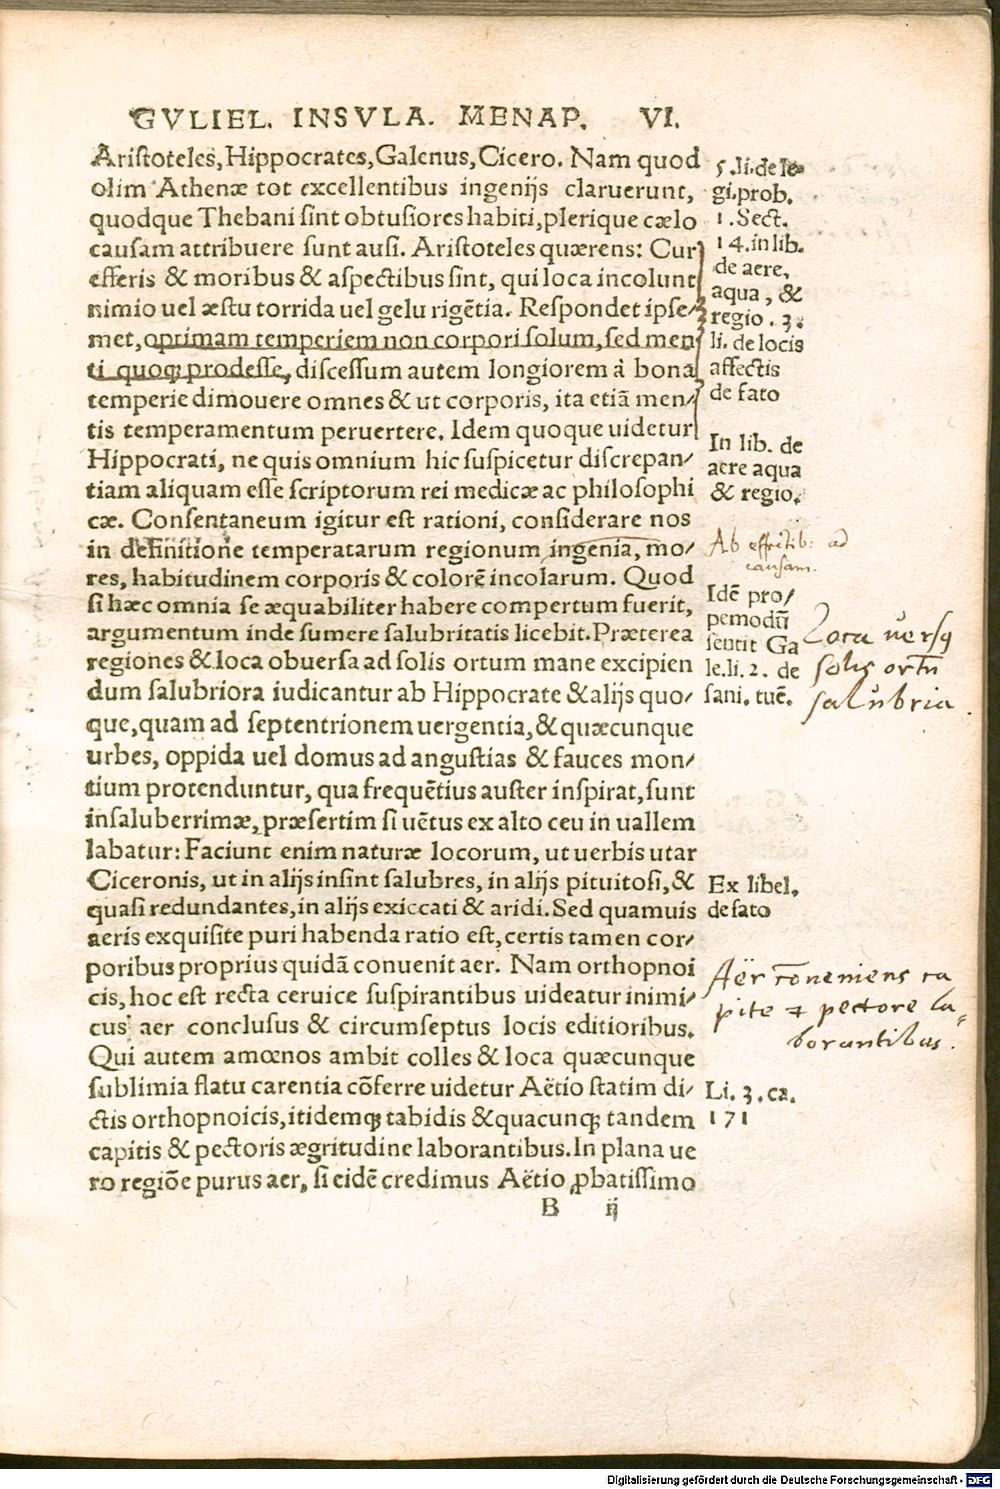 GVLIEL. INSVLA. MENAP. VI.
Aristoteles, Hippocrates, Galenus, Cicero. Nam quod
olim Athenæ tot excellentibus ingenijs claruerunt,
quodque Thebani sint obtusiores habiti, plerique cælo
causam attribuere sunt ausi. Aristoteles quærens: Cur
efferis & moribus & aspectibus sint, qui loca incolunt
nimio uel æstu torrida uel gelu rigētia. Respondet ipse/
met, optimam temperiem non corpori solum, sed men/
ti quoq; prodesse, discessum autem longiorem à bona
temperie dimouere omnes & ut corporis, ita etiā men/
tis temperamentum peruertere. Idem quoque uidetur
Hippocrati, ne quis omnium hic suspicetur discrepan/
tiam aliquam esse scriptorum rei medicæ ac philosophi
cæ. Consentaneum igitur est rationi, considerare nos
in definitione temperatarum regionum ingenia, mo/
res, habitudinem corporis & colorē incolarum. Quod
si hæc omnia se æquabiliter habere compertum fuerit,
argumentum inde sumere salubritatis licebit. Præterea
regiones & loca obuersa ad solis ortum mane excipien
dum salubriora iudicantur ab Hippocrate & alijs quo/
que, quam ad septentrionem uergentia, & quæcunque
urbes, oppida uel domus ad angustias & fauces mon/
tium protenduntur, qua frequētius auster inspirat, sunt
insaluberrimæ, præsertim si uētus ex alto ceu in uallem
labatur: Faciunt enim naturæ locorum, ut uerbis utar
Ciceronis, ut in alijs insint salubres, in alijs pituitosi, &
quasi redundantes, in alijs exiccati & aridi. Sed quamuis
aeris exquisite puri habenda ratio est, certis tamen cor/
poribus proprius quidā conuenit aer. Nam orthopnoi
cis, hoc est recta ceruice suspirantibus uideatur inimi/
cus aer conclusus & circumseptus locis editioribus.
Qui autem amœnos ambit colles & loca quæcunque
sublimia flatu carentia cōferre uidetur Aëtio statim di/
ctis orthopnoicis, itidemq; tabidis & quacunq; tandem
capitis & pectoris ægritudine laborantibus. In plana ue
ro regiōe purus aer, si eidē credimus Aëtio ꝓbatissimo
B ij
5. li. de le=
gi. prob.
1. Sect.
14. in lib.
de aere,
aqua, &
regio. 3.
li. de locis
affectis
de fato
In lib. de
aere aqua
& regio.
Ab effectib: ad
causam.
Idē pro/
pemodū
sentit Ga
le. li. 2. de
sani. tuē.
Loca versꝯ
solis ortū
salubria.
Ex libel.
de fato
Aër cōneniens ca
pite & pectore la=
borantibus.
Li. 3. ca.
171
Digitalisierung gefördert durch die Deutsche Forschungsgemeinschaft - DFG